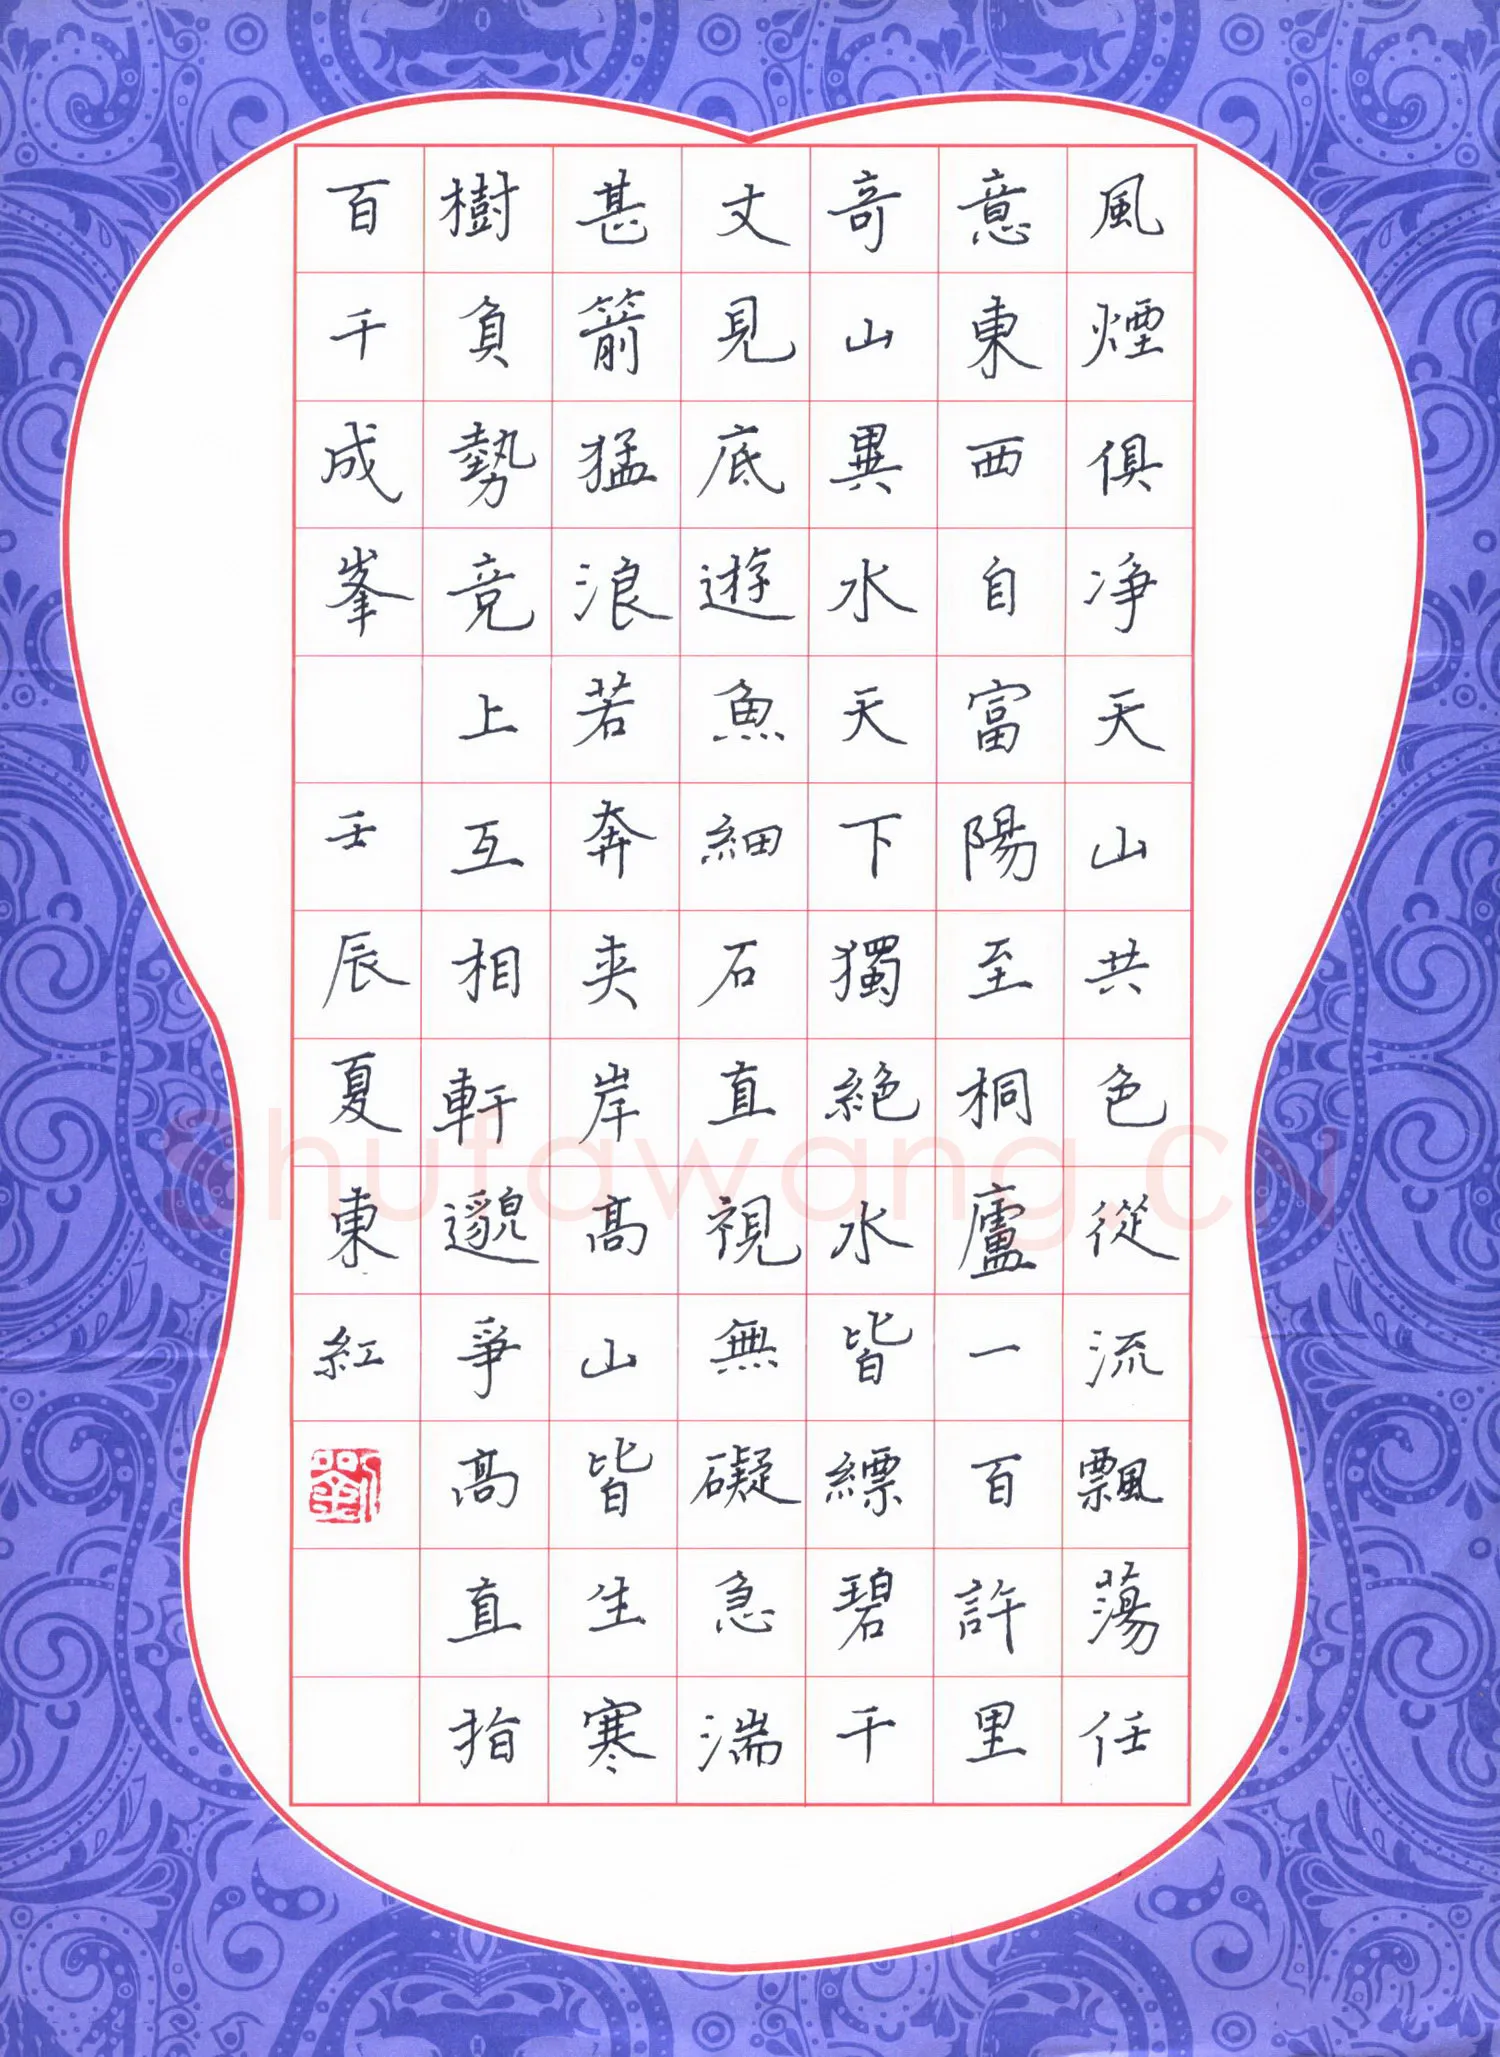 風煙俱凈天山共色從流飄蕩任
意東西自富陽至桐廬一百許里
奇山異水天下獨絕水皆縹碧千
丈見底遊魚細石直視無礙急湍
甚箭猛浪若奔夾岸高山皆生寒
樹負勢竞上互相軒邈爭高直指
百千成峯 壬辰夏東紅
劉
Shufawang.CN